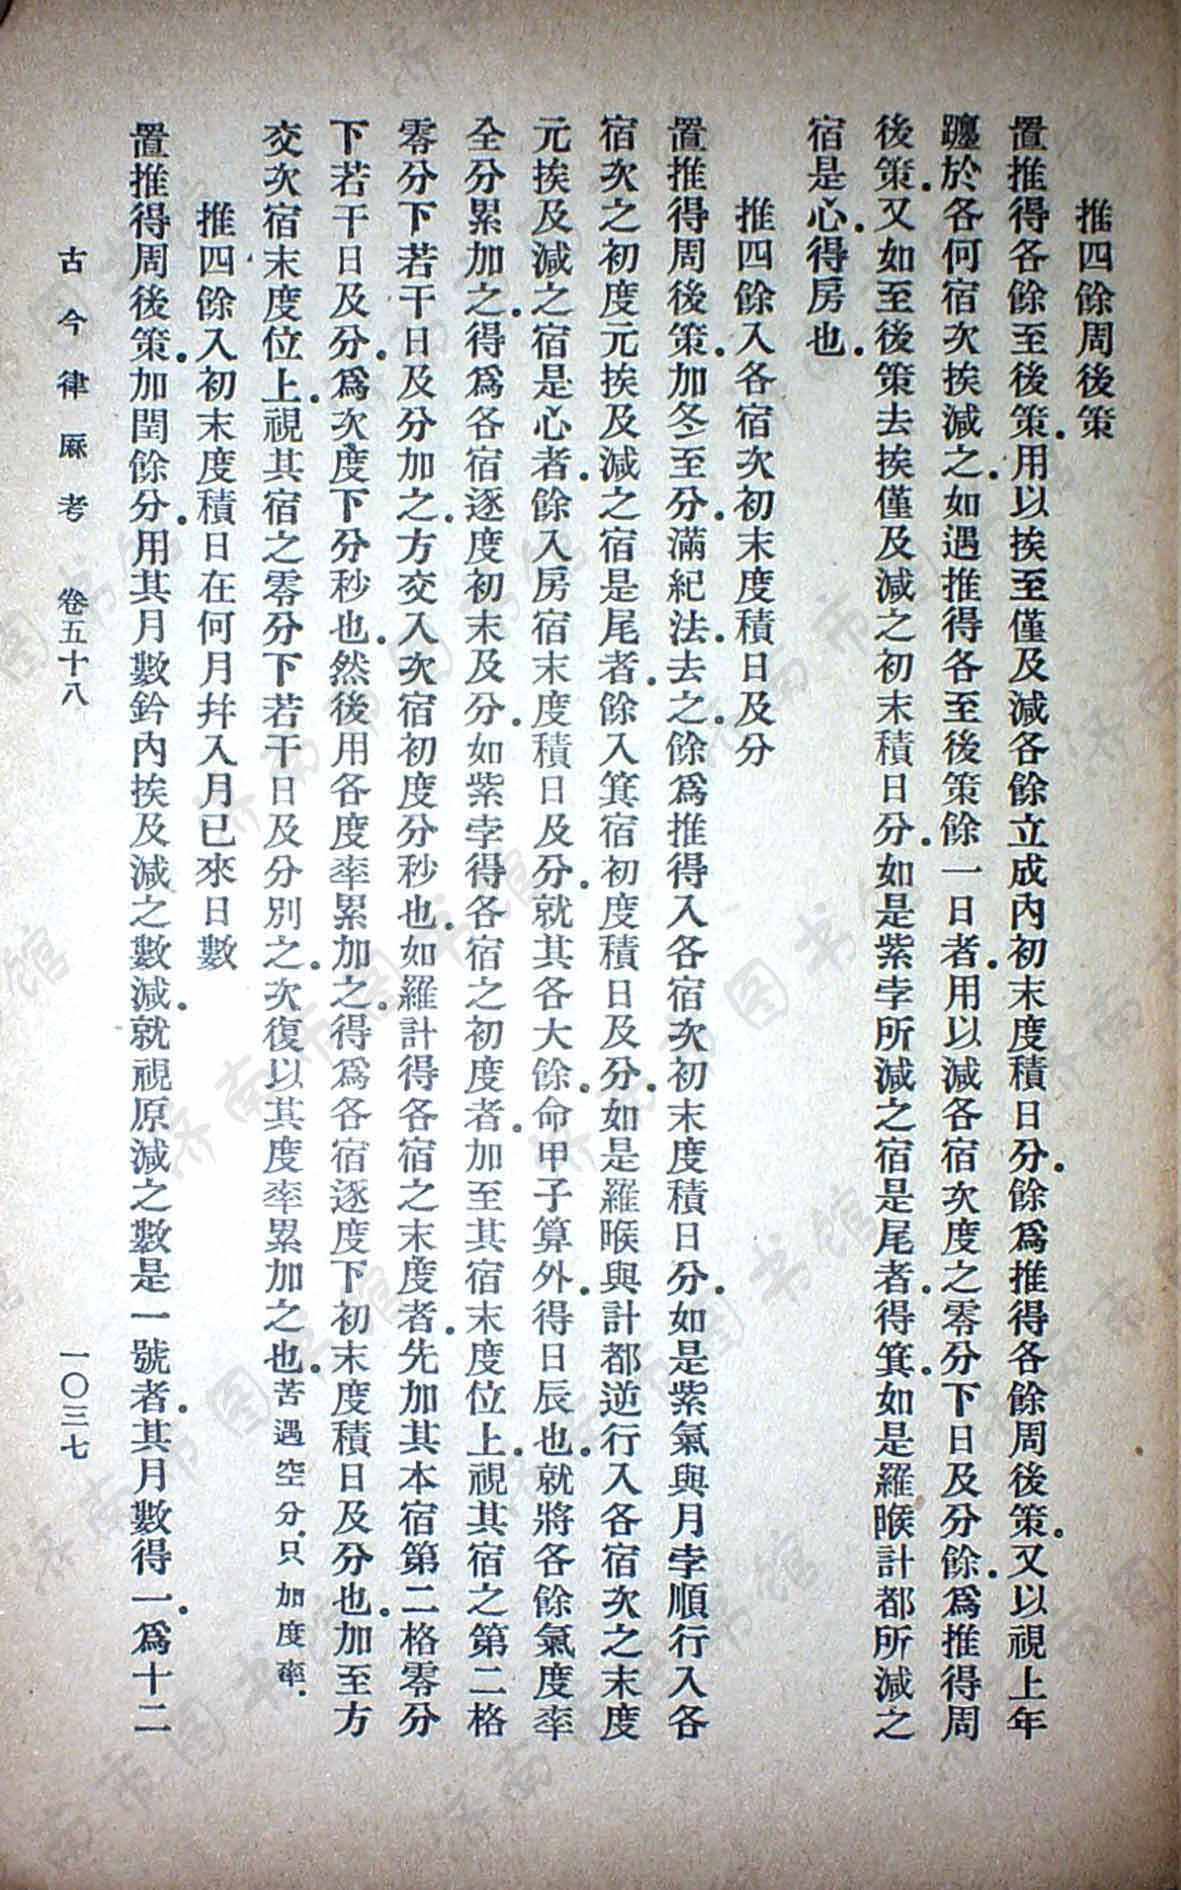 推四餘周後策
置推得各餘至後策。用以挨至僅及減各餘立成內初末度積日分。餘爲推得各餘周後策。又以視上年
躔於各何宿次挨減之。如遇推得各至後策餘一日者。用以減各宿次度之零分下日及分餘。爲推得周
後策。又如至後策去挨僅及減之初末積日分。如是紫孛所減之宿是尾者。得箕。如是羅睺計都所減之
宿是心。得房也。
推四餘入各宿次初末度積日及分
置推得周後策。加冬至分。滿紀法。去之。餘爲推得入各宿次初末度積日分。如是紫氣與月孛順行入各
宿次之初度元挨及減之宿是尾者。餘入箕宿初度積日及分。如是羅睺與計都逆行入各宿次之末度
元挨及減之宿是心者。餘入房宿末度積日及分。就其各大餘。命甲子算外。得日辰也。就將各餘氣度率
全分累加之。得爲各宿逐度初末及分。如紫孛得各宿之初度者。加至其宿末度位上。視其宿之第二格
零分下若干日及分加之。方交入次宿初度分秒也。如羅計得各宿之末度者。先加其本宿第二格零分
下若干日及分。爲次度下分秒也。然後用各度率累加之。得爲各宿逐度下初末度積日及分也。加至方
交次宿末度位上。視其宿之零分下若干日及分別之。次復以其度率累加之也。苦遇空分。只加度率。
推四餘入初末度積日在何月幷入月已來日數
置推得周後策。加閏餘分。用其月數鈐內挨及減之數減。就視原減之數是一號者。其月數得一。爲十二
古今律厤考 卷五十八 一〇三七
济南市图书馆